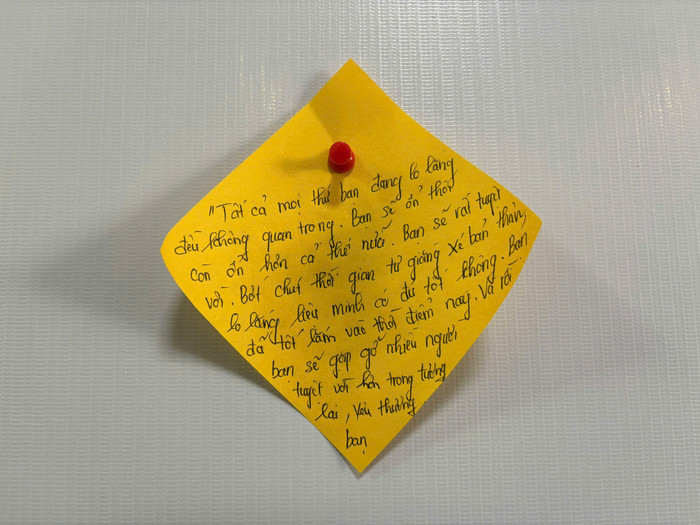 "Tất cả mọi thứ bạn đang lo lắng
đều không quan trọng. Bạn sẽ ổn thôi
còn ổn hơn cả thế nữa. Bạn sẽ rất tuyệt
vời. Bớt chút thời gian tự giằng xé bản thân,
lo lắng liệu mình có đủ tốt không. Bạn
đã tốt lắm vào thời điểm này. Và rồi
bạn sẽ gặp gỡ nhiều người
tuyệt vời hơn trong tương
lai, yêu thương
bạn